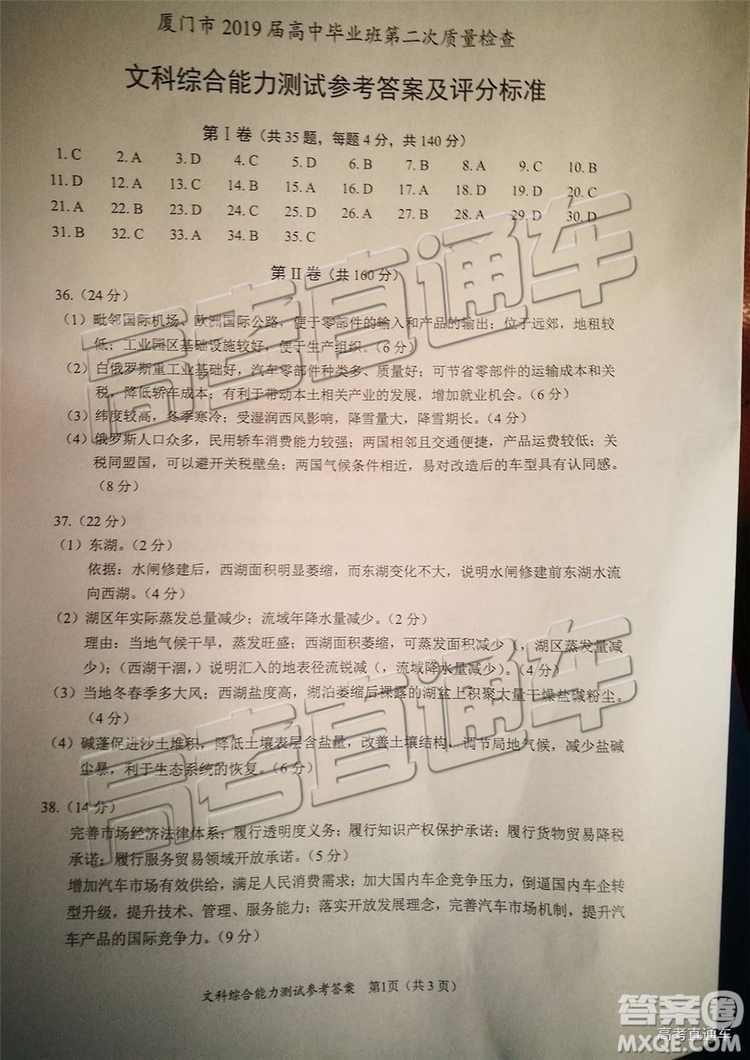 厦门市 2019 届高中毕业班第二次质量检查
文科综合能力测试参考答案及评分标准
第Ⅰ卷（共 35 题，每题 4 分，共 140 分）
1. C 2. A 3. D 4. C 5. D 6. B 7. B 8. A 9. C 10. B
11. D 12. A 13. C 14. B 15. A 16. B 17. D 18. B 19. D 20. C
21. A 22. B 23. D 24. B 25. D 26. A 27. B 28. A 29. D 30. D
31. B 32. C 33. A 34. B 35. C
第Ⅱ卷（共 160 分）
36.（24 分）
（1）毗邻国际机场、欧洲国际公路，便于零部件的输入和产品的输出；位于远郊，地租较
低；工业园区基础设施较好，便于生产组织。（6 分）
（2）白俄罗斯重工业基础好，汽车零部件种类多、质量好；可节省零部件的运输成本和关
税，降低轿车成本；有利于带动本土相关产业的发展，增加就业机会。（6 分）
（3）纬度较高，冬季寒冷；受湿润西风影响，降雪量大，降雪期长。（4 分）
（4）俄罗斯人口众多，民用轿车消费能力较强；两国相邻且交通便捷，产品运费较低；关
税同盟国，可以避开关税壁垒；两国气候条件相近，易对改造后的车型具有认同感。
（8 分）
37.（22 分）
（1）东湖。（2 分）
依据：水闸修建后，西湖面积明显萎缩，而东湖变化不大，说明水闸修建前东湖水流
向西湖。（4 分）
（2）湖区年实际蒸发总量减少；流域年降水量减少。（2 分）
理由：当地气候干旱，蒸发旺盛；西湖面积萎缩，可蒸发面积减少（，湖区蒸发量减
少）；（西湖干涸，）说明汇入的地表径流锐减（，流域降水量减少）。（4 分）
（3）当地冬春季多大风；西湖盐度高，湖泊萎缩后裸露的湖盆上积聚大量干燥盐碱粉尘。
（4 分）
（4）碱蓬促进沙土堆积，降低土壤表层含盐量，改善土壤结构，调节局地气候，减少盐碱
尘暴，利于生态系统的恢复。（6 分）
38.（14 分）
完善市场经济法律体系；履行透明度义务；履行知识产权保护承诺；履行货物贸易降税
承诺；履行服务贸易领域开放承诺。（5 分）
增加汽车市场有效供给，满足人民消费需求；加大国内车企竞争压力，倒逼国内车企转
型升级，提升技术、管理、服务能力；落实开放发展理念，完善汽车市场机制，提升汽
车产品的国际竞争力。（9 分）
文科综合能力测试参考答案 第1页（共 3 页）
高考直通车
高考直通车
答案圈
高考直通车
MXQE.COM